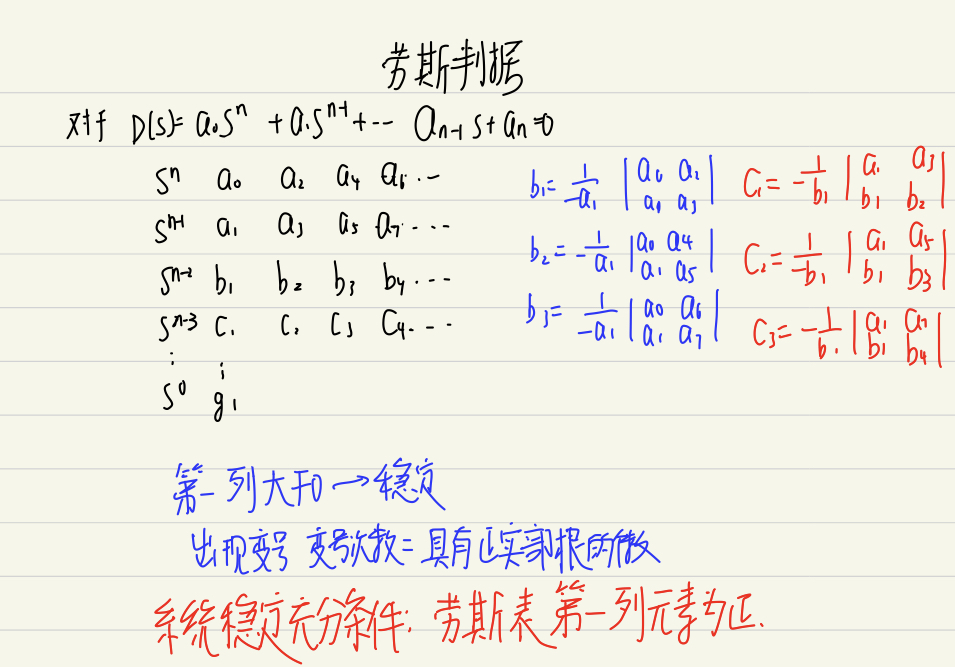 劳斯判据
对于 D(s)= a₀sⁿ + a₁sⁿ⁻¹ + ··· aₙ₋₁ s + aₙ = 0
sⁿ a₀ a₂ a₄ a₆ ···
sⁿ⁻¹ a₁ a₃ a₅ a₇ ····
sⁿ⁻² b₁ b₂ b₃ b₄ ···
sⁿ⁻³ c₁ c₂ c₃ c₄ ····
⋮ ⋮
s⁰ g₁
b₁= 1/-a₁ |a₀ a₂; a₁ a₃|
b₂= -1/a₁ |a₀ a₄; a₁ a₅|
b₃= 1/-a₁ |a₀ a₆; a₁ a₇|
C₁= -1/b₁ |a₁ a₃; b₁ b₂|
C₂= 1/-b₁ |a₁ a₅; b₁ b₃|
C₃= -1/b₁ |a₁ a₇; b₁ b₄|
第一列大于0→稳定
出现变号 变号次数=具有正实部根的个数
系统稳定充分条件: 劳斯表第一列元素为正.